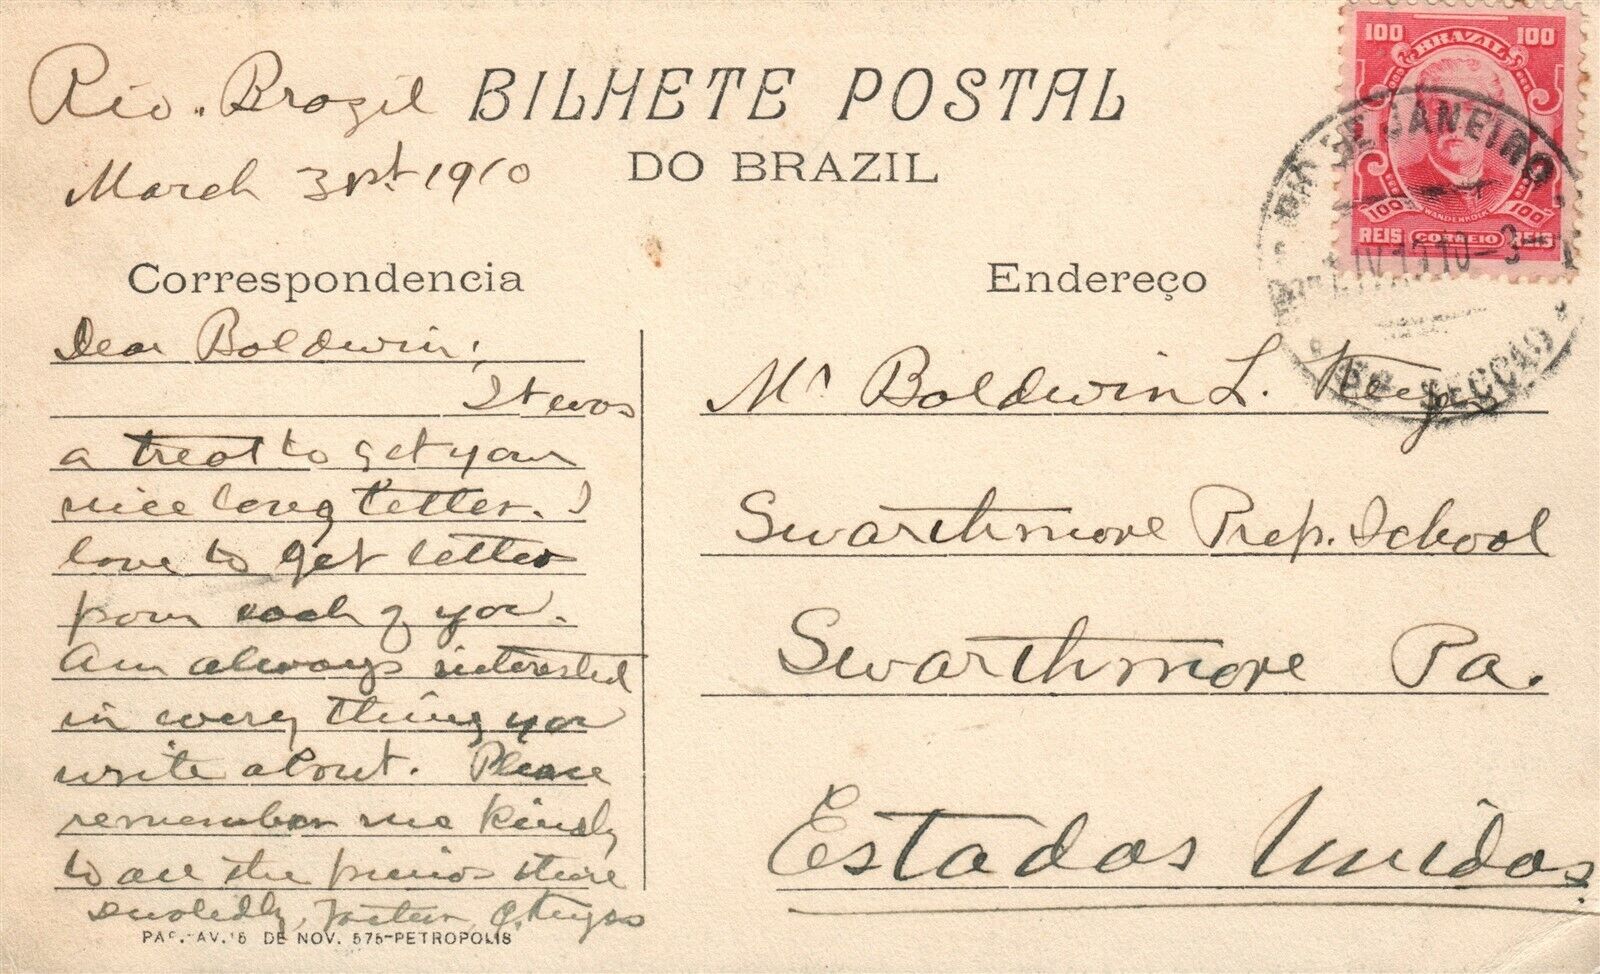 Rio. Brazil
March 31st 1910
BILHETE POSTAL
DO BRAZIL
Correspondencia
Dear Boldwin,
It was
a treat to get your
nice long letter. I
love to get letters
from each of you.
Am always interested
in every thing you
write about. Please
remember me kindly
to all the friends there
devotedly,
PAP. AV. 15 DE NOV. 575-PETROPOLIS
Endereço
Mr Boldwin L.
Swarthmore Prep. School
Swarthmore Pa.
Estados Unidos
100 100
BRAZIL
WANDENKOLK
100 100
REIS CORREIO REIS
RIO DE JANEIRO
SECÇÃO